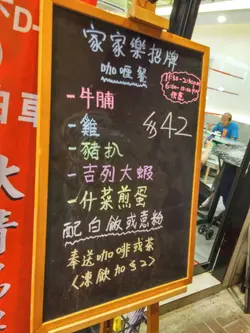 家家樂招牌
咖喱餐
-牛腩
-雞
-豬扒
-吉列大蝦
-什菜煎蛋
$42
配白飯或意粉
奉送咖啡或茶
(凍飲加$2)